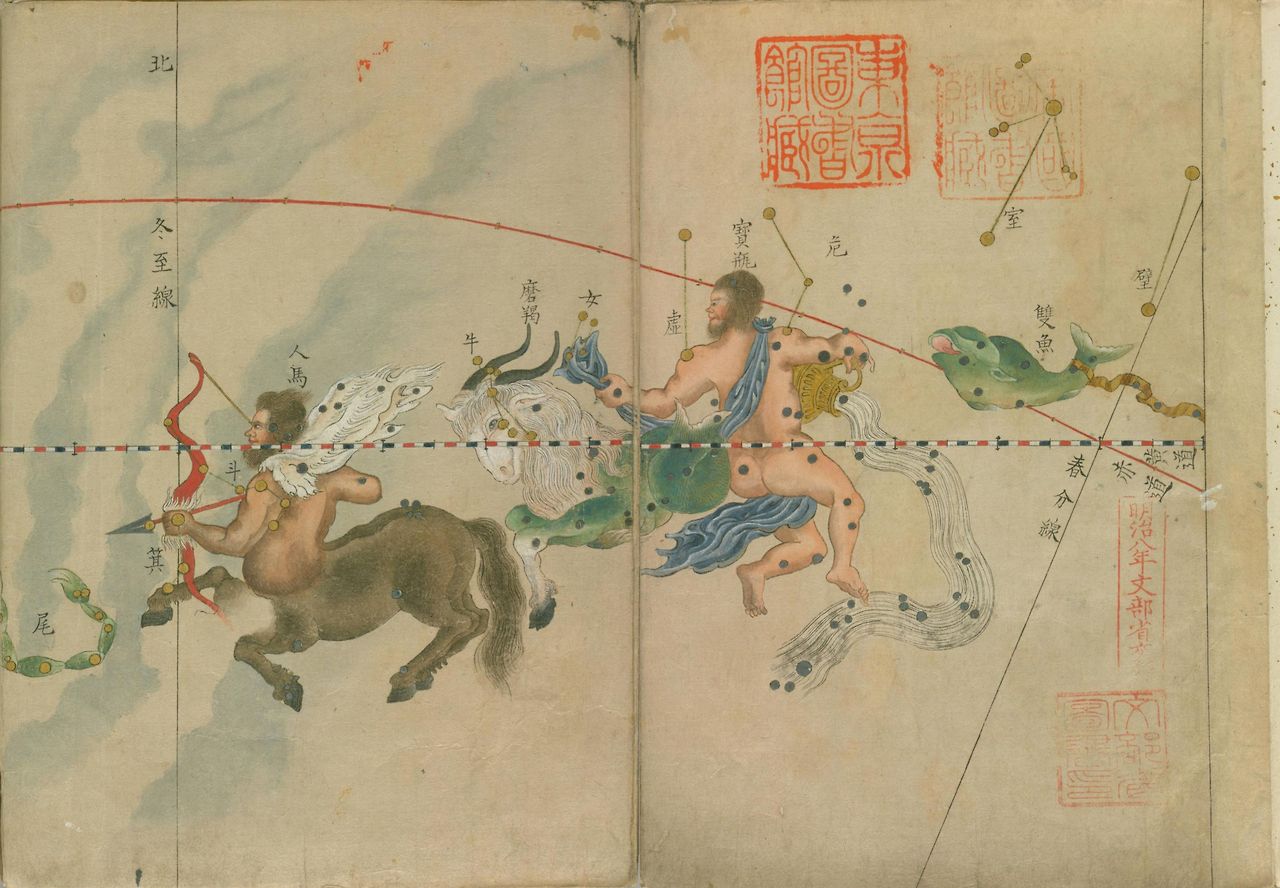 壁
室
雙魚
黄道
赤道
春分線
東京
圖書
館臧
明治八年文部省
危
寶瓶
虚
女
磨羯
牛
人馬
斗
箕
北
冬至線
尾